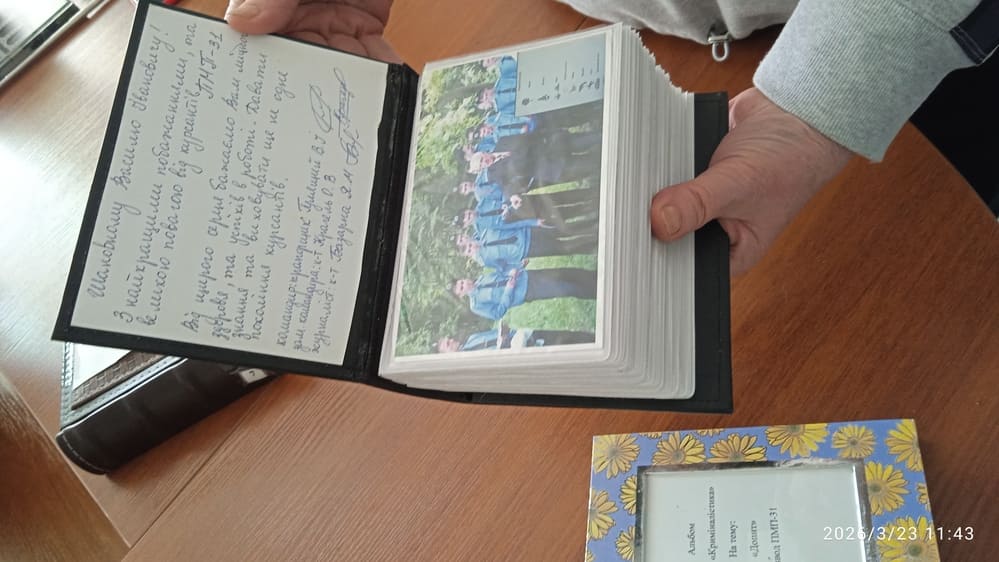 Шановному Василю Івановичу!
З найкращими побажаннями, та
великою повагою від курсантів ПМП-31
Від щирого серця бажаємо Вам міцного
здоровя, та успіхів в роботі. Давати
знання та виховувати ще не одне
покоління курсантів.
командир: прапорщик В.У
зам. командира: к-т О.В
журналіст: к-т Я.М
Альбом
«Криміналістика»
На тему:
«Допит»
ПМП-31
2026/3/23 11:43